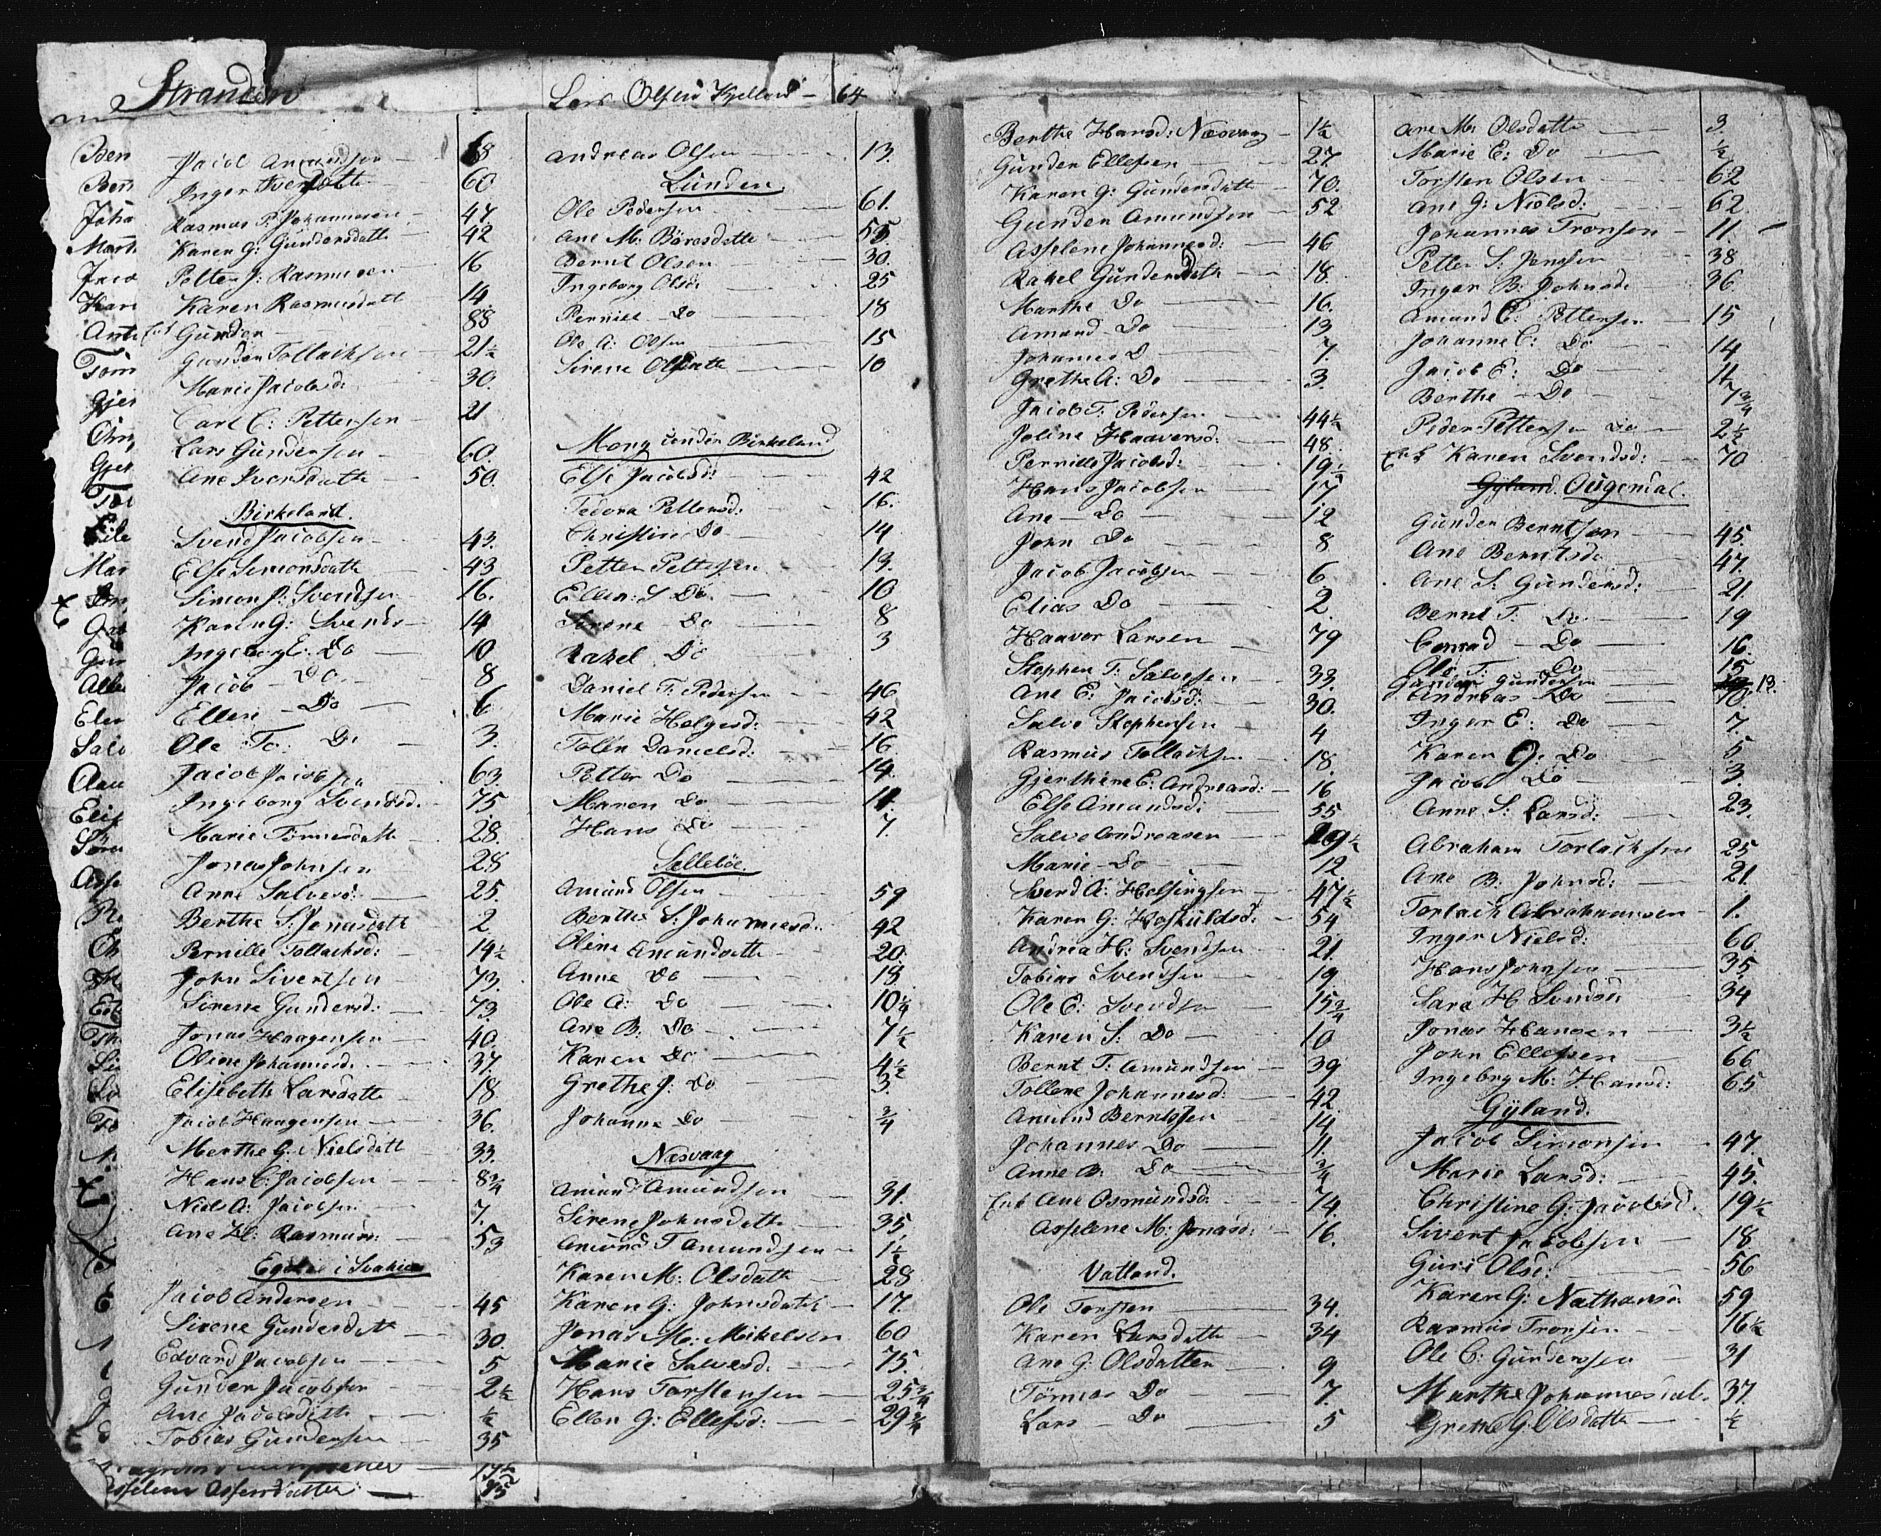 Stranden
Jacob Andersen 68
Inger Iversdatte 60
Rasmus P. Johannesen 47
Karen G: Gundersdatte 42
Petter J: Rasmusen 16
Karen Rasmusdatt 14
Gunder 88
Gunder Tollacksen 21½
Marie Jacobsd: 30.
Carl C: Pettersen 21
Lars Gundersen 60.
Ane Iversdatte 50.
Birkeland.
Svend Jacobsen 43.
Else Simonsdatte 43
Simon J: Svendsen 16.
Karen G: Svends 14
Ingeborg E. Do 10
Jacob Do 8
Ellen Do 6
Ole To: Do 3.
Jacob Jacobsen 63.
Ingeborg Svendsd. 75
Marie Tønnesdatte 28.
Jonas Johnsen 28
Anne Salvesd: 25.
Berthe S: Jonasdatte 2
Pernille Tollachsd: 14½
John Sivertsen 73.
Sirene Gundersd: 73
Jonas Haagensen 40.
Oline Johannesd: 37.
Elisebeth Larsdatte 18
Jacob Haagensen 36.
Merthe G: Nielsdatt 33
Hans C: Jacobsen 8¾
Niels A: Jacobsen 7.
Ane H: Rasmusd: 53
i Svahia
Jacob Andersen 45
Sirene Gundersdatte 30.
Edvard Jacobsen 5
Gunder Jacobsen 2½
Ane Jacobsdatte ½
Tobias Gundersen 35
Lars Olsen Kjelland 64
Andreas Olsen 13.
Lunden
Ole Pedersen 61.
Ane M: Børesdatte 55
Bernt Olsen 30.
Ingeborg Olsd: 25
Pernille Do 18
Ole A: Olsen 15
Sirene Olsdatte 10
Mong under Birkeland
Else Jacobsd: 42
Tedora Pettersd: 16.
Christin Do 14
Petter Pettersen 13.
Ellen S Do 10
Sirene Do 8
Rakel Do 3
Daniel T. Pedersen 46
Marie Helgesd: 42
Talen Danielsd: 16
Petter Do 14.
Maren Do 11.
Hans Do 7
Selleløe.
Amund Olsen 59
Berthe S: Johannesd: 42
Oline Amundsdatte 20.
Anne Do 18.
Ole A: Do 10¼
Ane B: Do 7½
Karen Do 4½
Grethe J: Do 3.
Johanne Do ¾
Næsvaag
Amund Amundsen 31.
Sirene Johnsdatte 35
Amund T Amundsen 1½
Karen M: Olsdatte 28
Karen G: Johnsdatte 17.
Jonas M: Mikelsen 60
Marie Salvesd. 75
Hans Torstensen 25¾
Ellen G: Ellefsd: 29¾
Berthe Hansd: Næsvaag 1½
Gunder Ellefsen 27.
Karen G: Gundersdatt 70.
Gunder Amundsen 52
Asselene Johannesd: 46
Rakel Gundersdatte 18.
Marthe Do 16.
Amund Do 13
Johannes D 7.
Grethe A: Do 3.
Jacob T. Pedersen 44½
Joline Haaversd: 48.
Pernille Jacobsd: 19½
Hans Jacobsen 17.
Ane Do 12
John Do 8
Jacob Jacobsen 6
Elias Do 2
Haaver Larsen 79
Stephen T. Salvesen 33.
Ane E. Jacobsd: 30.
Salve Stephensen 4
Rasmus Tollachsen 18.
Gjerthine E: Andreasd: 16
Else Amundsd: 55
Salve Andreasen
Marie Do 12
Svend A: Helsingsen 47½
Karen G: Hoskuldsd: 54
Andrea H: Svendsen 21.
Tobias Svendsen 19.
Ole E: Svendsen 15¾
Karen S: Do 10
Bernt T: Amundsen 39
Tollene Johannesd: 42
Amund Berntssen 14.
Johannes Do 11.
Anne B: Do ¾
Enk Ane Osmundsd: 74.
Asselene M: Jonasd: 16.
Vatland.
Ole Torsten 34.
Karen Larsdatte 34
Ane G: Olsdatter 9
Tønnes Do 7.
Lars Do 5
Ane M: Olsdatte 3.
Marie E: Do ½
Torsten Olsen 62
Ane G: Nielsd: 62.
Johannes Tronsen 11.
Petter S. Jenssen 38
Inger B. Johnsd: 36
Amund E. Pettersen 15
Johanne C: Do 14
Jacob E: Do 11
Berthe Do 7¾
Peder Pettersen Do 2½
Enk Karen Svendsd: 70
Gyland. Ougendal.
Gunder Berntsen 45.
Ane Berntsd: 47.
Ane S. Gundersd: 21
Bernt T. Do 19
Conrad Do 16.
Ole T. Do 15
Gunder Gundersen 13.
Andreas Do 10.
Inger E: Do 7.
Karen G. Do 5
Jacob Do 3.
Anne S. Larsd: 23.
Abraham Torlacksen 25
Ane B. Johnsd: 21.
Torlack Abrahamsen 1.
Inger Nielsd: 60.
Hans Johnsen 35.
Sara H Svendsd 34
Jonas Hansen 3½
John Ellefsen 66.
Ingebrg M: Hansd: 65
Gyland.
Jacob Simonsen 47.
Marie Larsd: 45.
Christine G: Jacobsd. 19½
Sivert Jacobsen 18
Guri Olsd: 56
Karen G: Nathansd 59
Rasmus Tronsen 16½
Ole C: Gunderssen 31
Marthe Johannesdat. 37.
Grethe G: Olsdatte ½